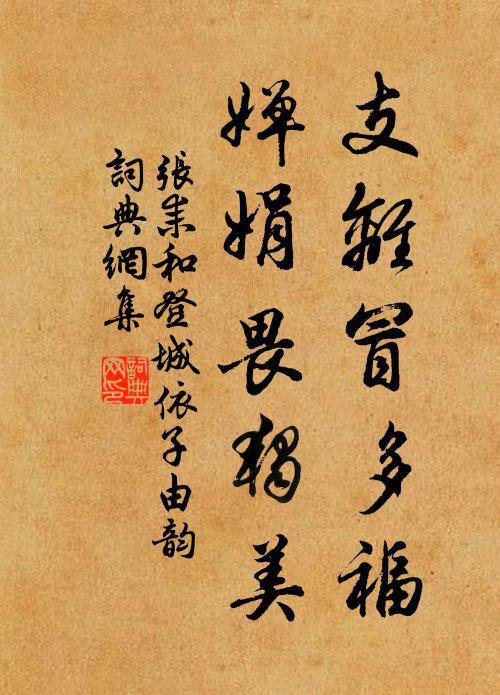 支離冒多福
嬋娟畏獨美
張耒和登城依子由韵
詞典網集
詞典
网印